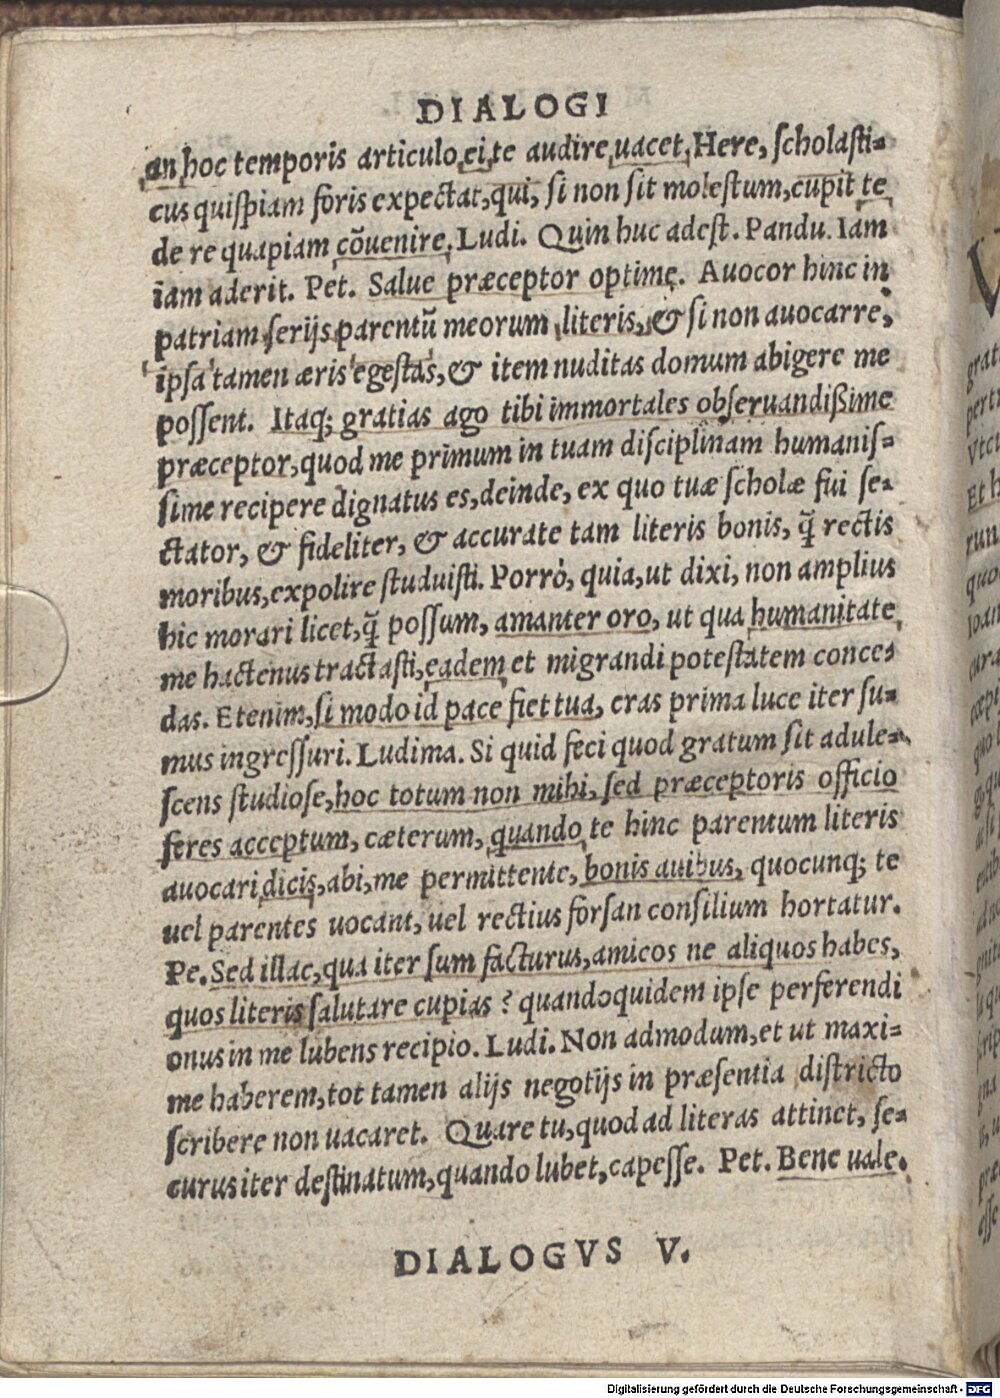 DIALOGI
an hoc temporis articulo ei te audire uacet. Here, ſcholaſti-
cus quiſpiam foris expectat, qui, ſi non ſit moleſtum, cupit te
de re quapiam cõuenire. Ludi. Quin huc adeſt. Pandu. Iam
iam aderit. Pet. Salue præceptor optime. Auocor hinc in
patriam ſerijs parentũ meorum literis, & ſi non auocarẽ,
ipſa tamen æris egeſtas, & item nuditas domum abigere me
poſſent. Itaq; gratias ago tibi immortales obſeruandißime
præceptor, quod me primum in tuam diſciplinam humaniſ-
ſime recipere dignatus es, deinde, ex quo tuæ ſcholæ fui ſe-
ctator, & fideliter, & accurate tam literis bonis, q̃ rectis
moribus, expolire ſtuduiſti. Porrò, quia, ut dixi, non amplius
hic morari licet, q̃ poſſum, amanter oro, ut qua humanitate
me hactenus tractaſti, eadem et migrandi poteſtatem conce-
das. Etenim, ſi modo id pace fiet tua, cras prima luce iter ſu-
mus ingreſſuri. Ludima. Si quid feci quod gratum ſit adule-
ſcens ſtudioſe, hoc totum non mihi, ſed præceptoris officio
feres acceptum, cæterum, quando te hinc parentum literis
auocari dicis, abi, me permittente, bonis auibus, quocunq; te
uel parentes uocant, uel rectius forſan conſilium hortatur.
Pe. Sed illac, qua iter ſum facturus, amicos ne aliquos habes,
quos literis ſalutare cupias? quandoquidem ipſe perferendi
onus in me lubens recipio. Ludi. Non admodum, et ut maxi-
me haberem, tot tamen alijs negotijs in præſentia diſtricto
ſcribere non uacaret. Quare tu, quod ad literas attinet, ſe-
curus iter deſtinatum, quando lubet, capeſſe. Pet. Bene uale.
DIALOGVS V.
Digitalisierung gefördert durch die Deutsche Forschungsgemeinschaft - DFG